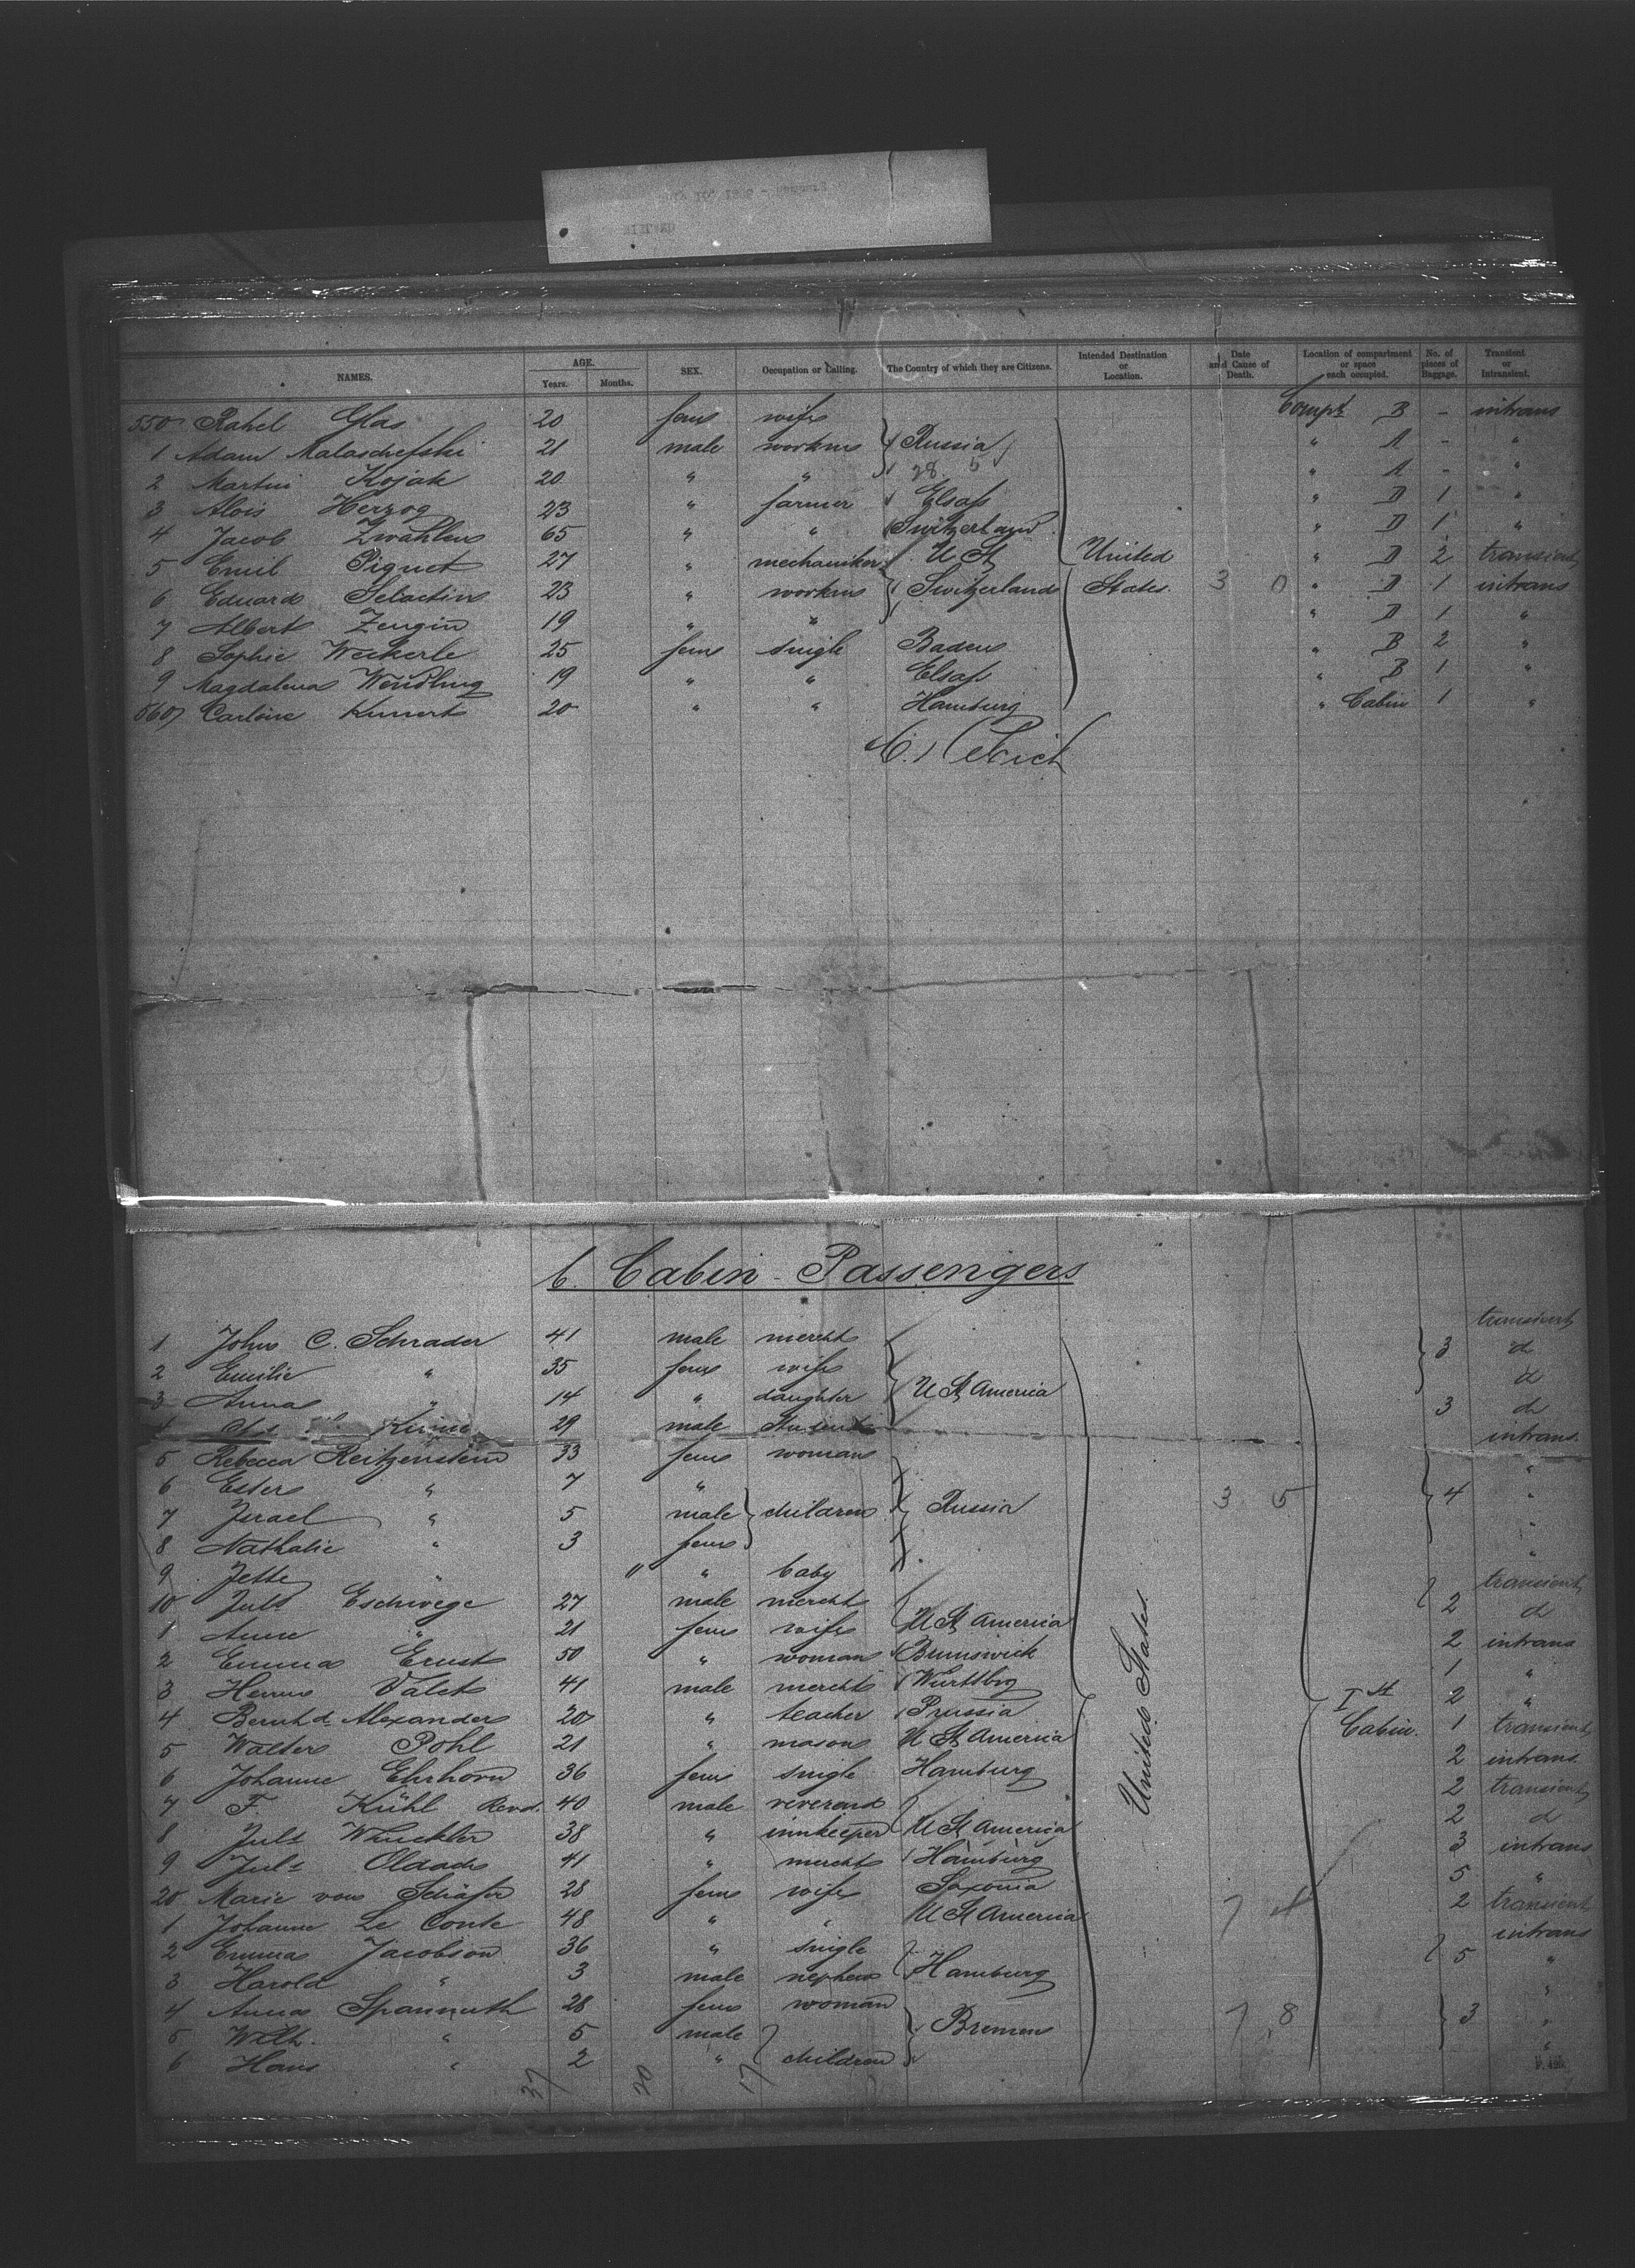 NAMES. AGE. Years. Months. SEX. Occupation or Calling. The Country of which they are Citizens. Intended Destination or Location. Date and Cause of Death. Location of compartment or space each occupied. No. of pieces of Baggage. Transient or Intransient.
550 Rahel Glas 20 fem wife Compt B - intrans
1 Adam Malaschefski 21 male workm Russia " A - "
2 Martin Kojak 20 " " " A - "
3 Alois Herzog 23 " farmer Elsaß " D 1 "
4 Jacob Zwahlen 65 " " Switzerland " D 1 "
5 Emil Piguet 27 " mechaniker U St United " D 2 transient
6 Eduard 23 " workm Switzerland States. 3 0 " D 1 intrans
7 Albert Zengin 19 " " " D 1 "
8 Sophie Weckerle 25 fem single Baden " B 2 "
9 Magdalena Wendling 19 " " Elsaß " B 1 "
560 Carloine Kunert 20 " " Hamburg " Cabin 1 "
b. Cabin-Passengers
transient
1 John C. Schrader 41 male mercht 3 d
2 Emilie " 35 fem wife d
3 Anna " 14 " daughter U St America 3 d
4 29 male intrans.
5 Rebecca Reitzenstein 33 fem woman "
6 Ester " 7 " 4 "
7 Israel " 5 male children Russia 3 5 "
8 Nathalie " 3 fem "
9 Jette " 11 " baby transient
10 Juls Eschwege 27 male mercht 2 d
1 Anne " 21 fem wife U St America 2 intrans
2 Emma Ernst 50 " woman Brunswick 1 "
3 Herm Valet 41 male mercht Wurttbrg Ist 2 "
4 Bernhd. Alexander 20 " teacher Prussia Cabin. 1 transient
5 Walter Pohl 21 " mason U St America United States. 2 intrans
6 Johanne Ehrhorn 36 fem single Hamburg 2 transient
7 F. Kühl Revd. 40 male reverend 2 d
8 Juls 38 " innkeeper U St America 3 intrans
9 Juls Oldach 41 " mercht Hamburg 5 "
20 Marie von Schäfer 28 fem wife Saxonia 2 transient
1 Johanne Le Conte 48 " " U St America 7 4 intrans
2 Emma Jacobson 36 " single 5 "
3 Harold " 3 male nephew Hamburg "
4 Anna Spannuth 28 fem woman 3 "
5 Wilh. " 5 male Bremen 7 8 "
6 Hans " 2 " children
37 20 17